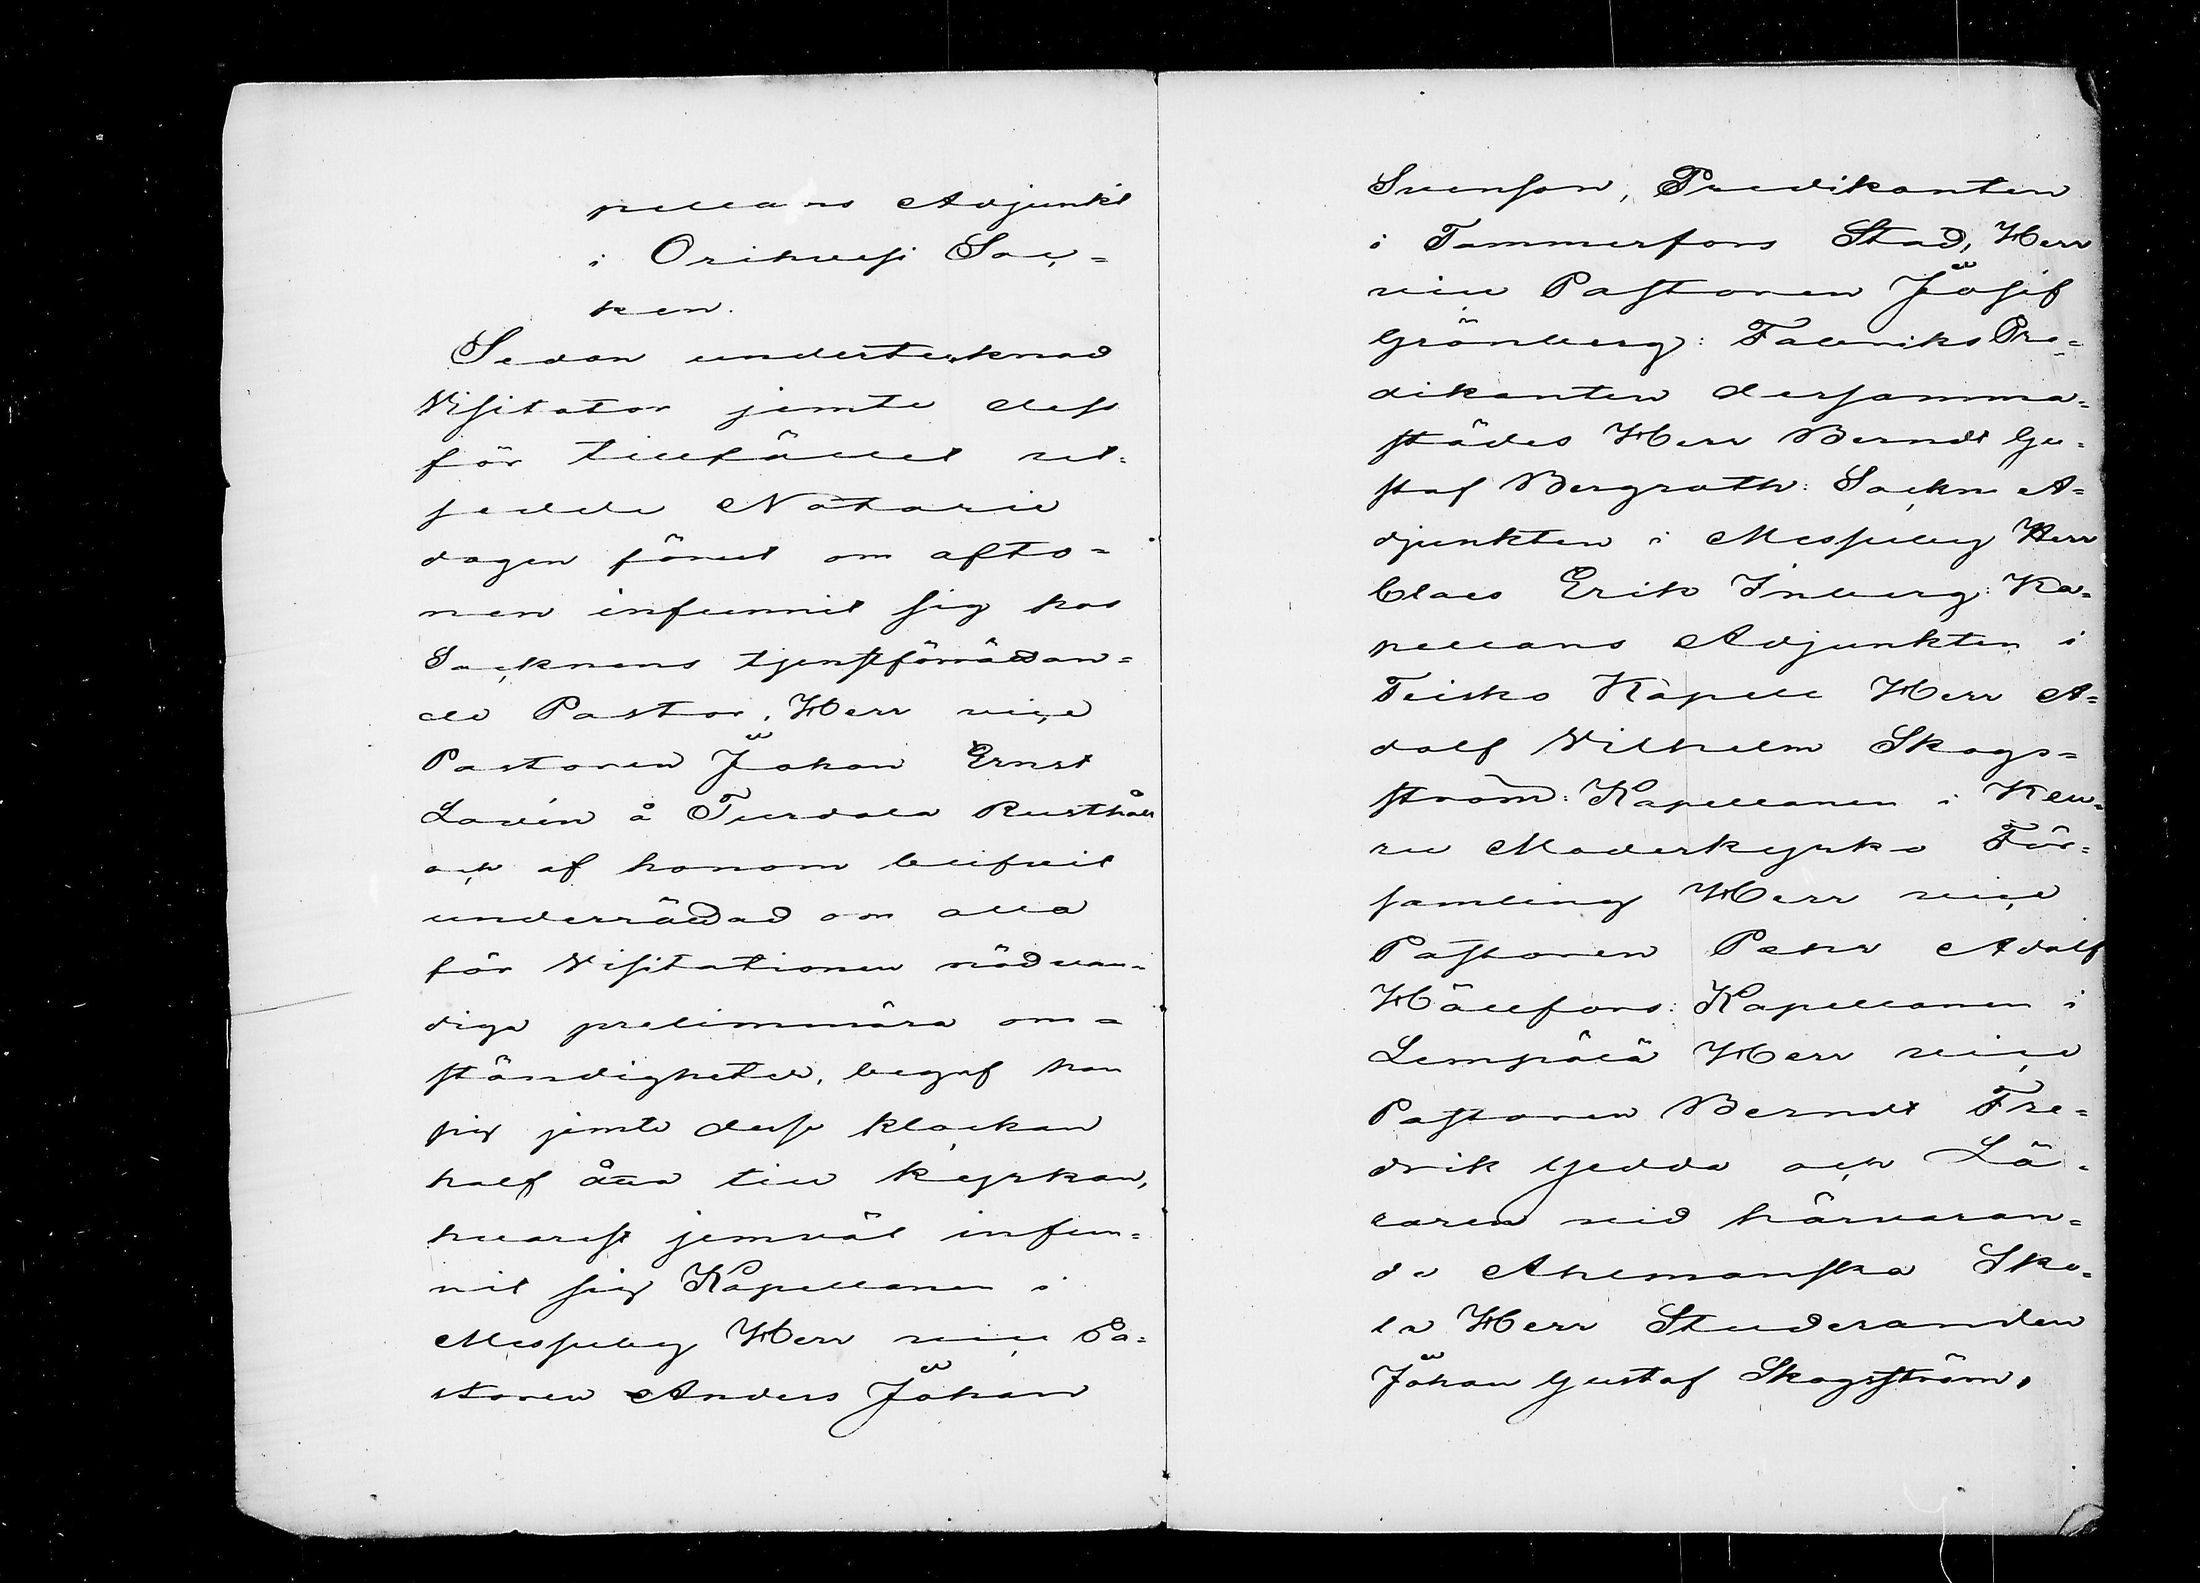 pellans Adjunkt
i Orihvesi Soc¬
ken.
Sedan undertecknad
Visitator jemte dess
för tillfället ut¬
sedde Notarie
dagen förut om afto¬
nen infunnit sig hos
Socknens tjenstförrättan¬
de Pastor, Herr vice
Pastoren Johan Ernst
Lovén å Turdala Rusthåll
och af honom blifvit
underrättad om alla
för Visitationen nödvän¬
diga preliminära om¬
ständigheter, begaf han
sig jemte desse klockan
half åtta till kyrkan,
hvarest jemväl infun¬
nit sig Kapellanen i
Messuby Herr vice Pa¬
storen Anders Johan
Svenson, Predikanten
i Tammerfors Stad, Herr
vice Pastoren Josef
Grönberg: Fabriks Pre¬
dikanten dersamma¬
städes Herr Berndt Gu¬
staf Bergroth: Sockne A¬
djunkten i Messuby Herr
Claes Erik Inberg: Ka¬
pellans Adjunkten i
Teisko Kapell Herr A¬
dolf Wilhelm Skogs¬
ström: Kapellanen i Keu¬
ru Moderkyrko För¬
samling Herr vice
Pastoren Pehr Adolf
Hällfors: Kapellanen i
Lempälä Herr vice
Pastoren Berndt Fre¬
drik Gedda och Lä¬
raren vid härvaran¬
de Ahlmanska Sko¬
la Herr Studeranden
Johan Gustaf Skogström.